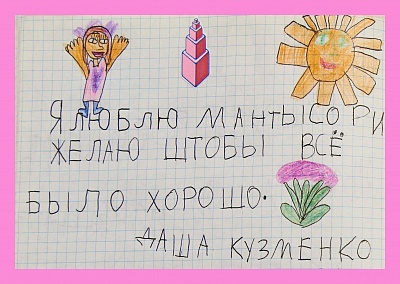 Я ЛЮБЛЮ МАНТЫСОРИ
ЖЕЛАЮ ШТОБЫ ВСЁ
БЫЛО ХОРОШО.
ДАША КУЗМЕНКО